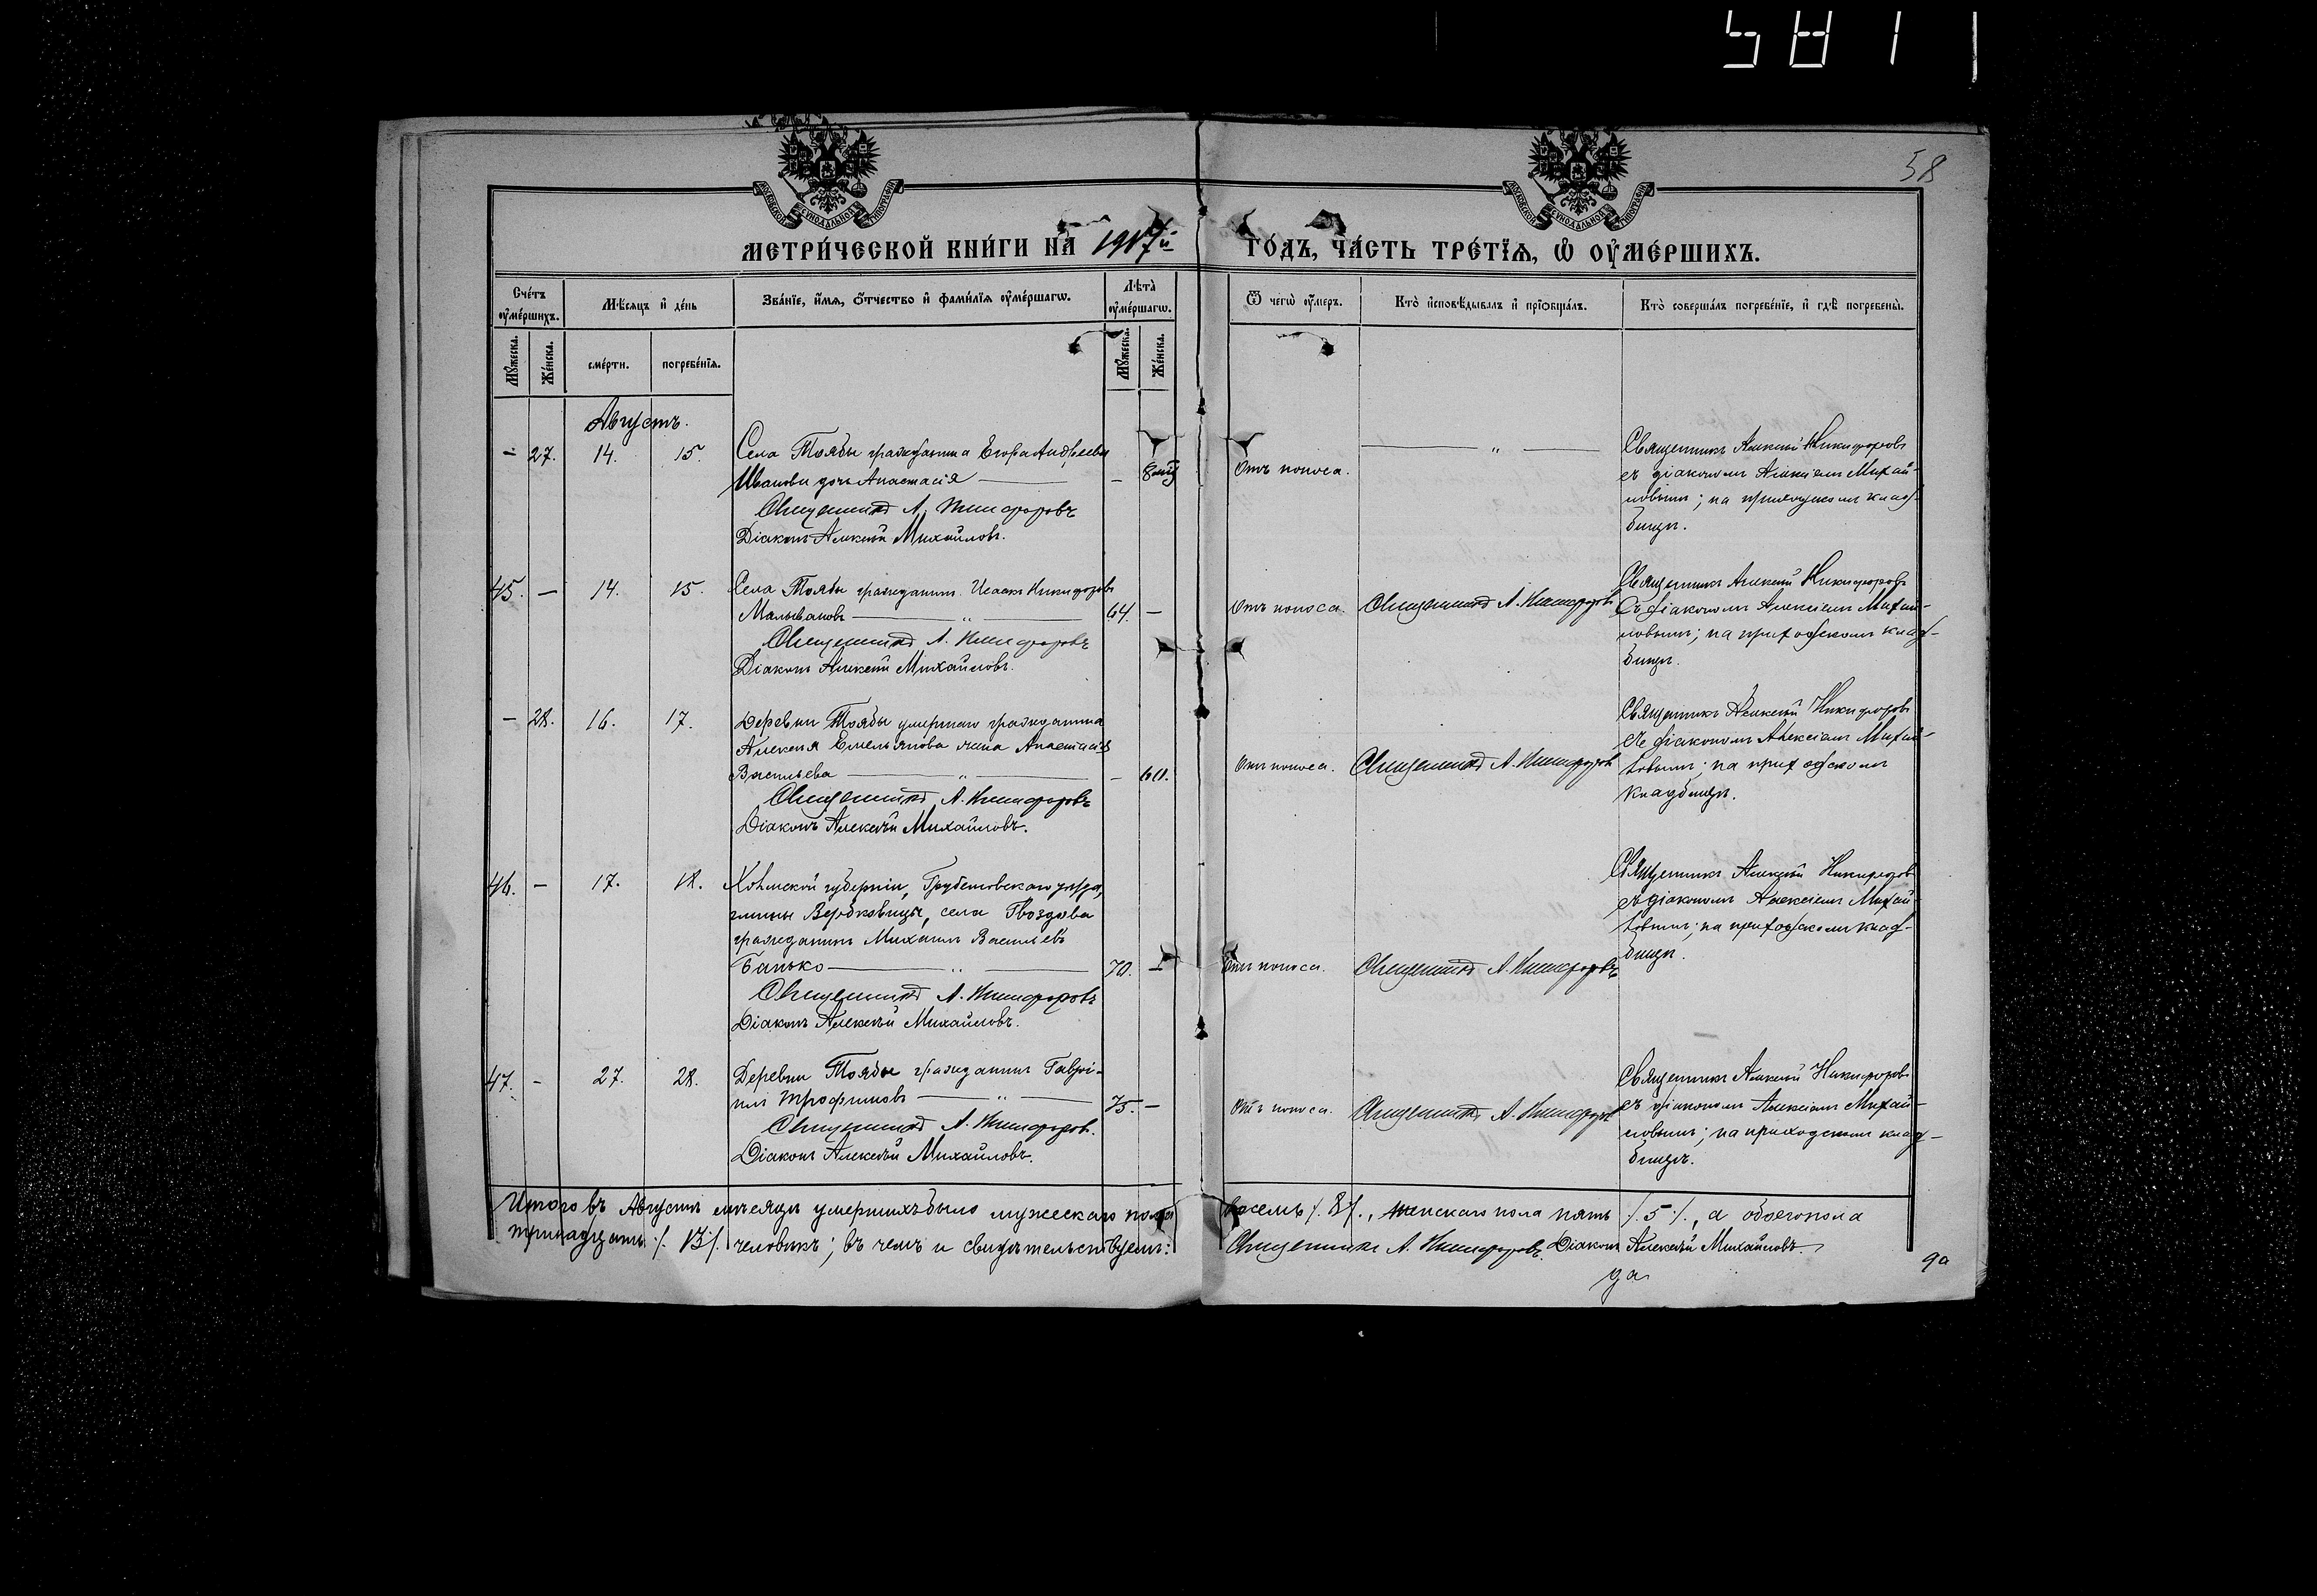 58
МОСКОВСКОЙ СѴНОДАЛЬНОЙ ТИПОГРАФІИ
МОСКОВСКОЙ СѴНОДАЛЬНОЙ ТИПОГРАФІИ
МЕТРИ́ЧЕСКОЙ КНИ́ГИ НА 1917й ГО́ДЪ, ЧА́СТЬ ТРЕ́ТЇѦ, Ѡ҆ ОУ҆МЕ́РШИХЪ.
Сче́тъ оу҆ме́ршихъ.
Мѣ́сяцъ и҆ де́нь
Зва́нїе, и҆́мѧ, ѻ҆́тчество и҆ фами́лїѧ оу҆ме́ршагѡ.
Лѣ́та оу҆ме́ршагѡ.
Ѿ чегѡ̀ оу҆́меръ.
Кто̀ и҆сповѣ́дывалъ и҆ прїѡбща́лъ.
Кто̀ соверша́лъ погребе́нїе, и҆ гдѣ̀ погребены̀.
Мꙋ́жеска.
Же́нска.
сме́рти.
погребе́нїѧ.
Мꙋ́жеска.
Же́нска.
Августъ.
- 27. 14. 15. Села Тоябы гражданина Егора Андреева
Иванова дочь Анастасія -
Священникъ А. Никифоровъ
Діаконъ Алексѣй Михайловъ.
Отъ поноса.
Священникъ Алексѣй Никифоровъ
съ діакономъ Алексіемъ Михай-
ловымъ; на приходскомъ клад-
бищѣ.
45. — 14. 15. Села Тоябы гражданинъ Исаакъ Никифоровъ
Малывановъ — „ — 64. —
Священникъ А. Никифоровъ
Діаконъ Алексѣй Михайловъ.
Отъ поноса. Священникъ А. Никифоровъ
Священникъ Алексѣй Никифоровъ
съ діакономъ Алексіемъ Михай-
ловымъ; на приходскомъ клад-
бищѣ.
- 28. 16. 17. Деревни Тоябы умершаго гражданина
Алексѣя Емельянова жена Анастасія
Васильева — „ — - 60.
Священникъ А. Никифоровъ
Діаконъ Алексѣй Михайловъ.
Отъ поноса. Священникъ А. Никифоровъ
Священникъ Алексѣй Никифоровъ
съ діакономъ Алексіемъ Михай-
ловымъ; на приходскомъ
кладбищѣ.
46. — 17. 18. Холмской губерніи, Грубешовскаго уѣзда,
гмины Вербковицы, села Гвоздова
гражданинъ Михаилъ Васильевъ
Банько — „ — 70. —
Священникъ А. Никифоровъ
Діаконъ Алексѣй Михайловъ.
Отъ поноса. Священникъ А. Никифоровъ
Священникъ Алексѣй Никифоровъ
съ діакономъ Алексіемъ Михай-
ловымъ; на приходскомъ клад-
бищѣ.
47. - 27. 28. Деревни Тоябы гражданинъ Гаврі-
илъ Трофимовъ — „ — 75. —
Священникъ А. Никифоровъ.
Діаконъ Алексѣй Михайловъ.
Отъ поноса. Священникъ А. Никифоровъ
Священникъ Алексѣй Никифоровъ
съ діакономъ Алексіемъ Михай-
ловымъ; на приходскомъ клад-
бищѣ.
Итого въ Августѣ мѣсяцѣ умершихъ было мужескаго пола восемь /.8/., женскаго пола пять /.5/., а обоего пола
тринадцать /.13/. человѣкъ; въ чемъ и свидѣтельствуемъ: Священникъ А. Никифоровъ. Діаконъ Алексѣй Михайловъ.
да